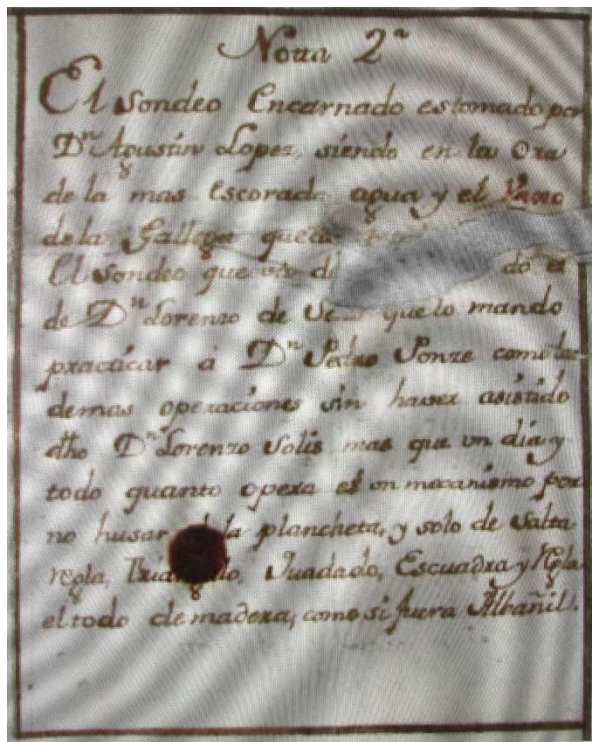 Notta 2ª
El Sondeo Encarnado es tomado por
Dn Agustin Lopez, siendo en la Ora
de la mas escorada agua y el Vano
de la Gallega queda
El Sondeo que va de do es
de Dn Lorenzo de que lo mando
practicar a Dn Pedro Ponze como las
demas operaciones sin haver asistido
dho Dn Lorenzo Solis mas que un dia y
todo quanto opera es un mecanismo por
no husar la plancheta, y solo de Salta
regla, Quadrado, Escuadra y Regla
el todo de madera, como si fuera Albañil.